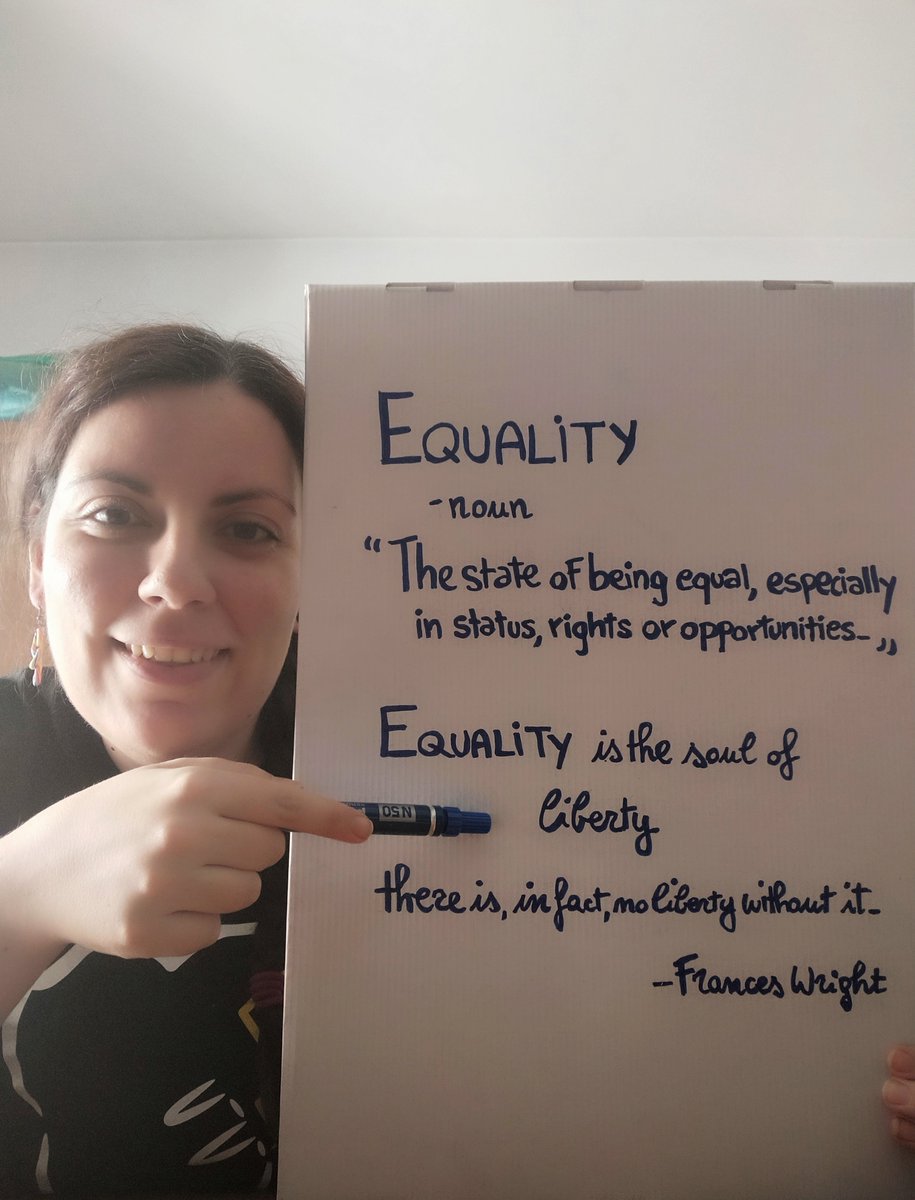 EQUALiTY
-noun
“The state of being equal, especially
in status, rights or opportunities-„
EQUALiTY is the soul of
liberty
there is, in fact, no liberty without it-
-Frances Wright
N50